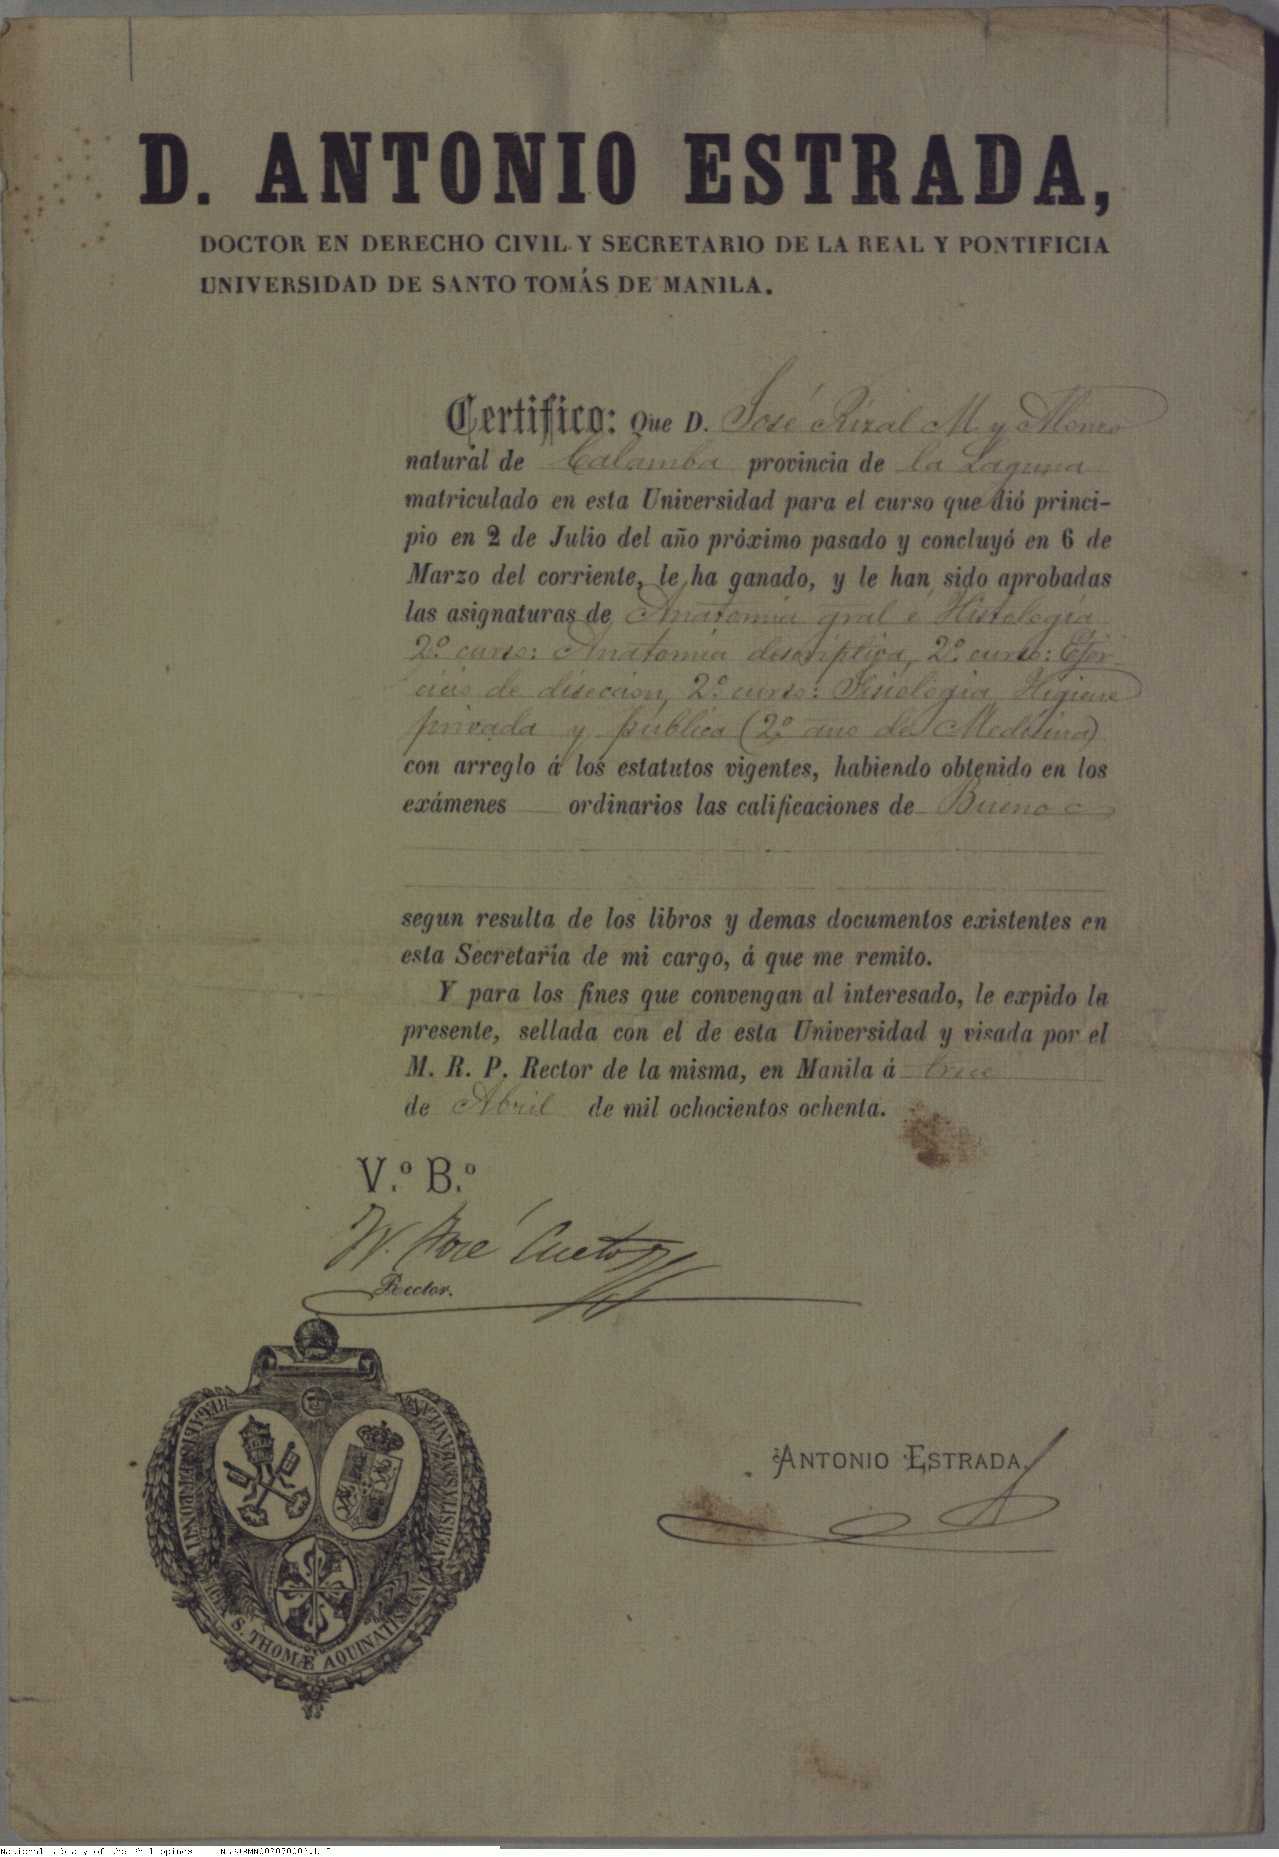 D. ANTONIO ESTRADA,
DOCTOR EN DERECHO CIVIL Y SECRETARIO DE LA REAL Y PONTIFICIA
UNIVERSIDAD DE SANTO TOMÁS DE MANILA.
Certifico: Que D. José Rizal M. y Alonso
natural de Calamba provincia de la Laguna
matriculado en esta Universidad para el curso que dió princi-
pio en 2 de Julio del año próximo pasado y concluyó en 6 de
Marzo del corriente, le ha ganado, y le han sido aprobadas
las asignaturas de Anatomia gral é Histologia
2.º curso: Anatomia descriptiva, 2.º curso: Ejer-
cicios de diseccion, 2.º curso: Fisiologia, Higiene
privada y publica (2.º año de Medicina)
con arreglo á los estatutos vigentes, habiendo obtenido en los
exámenes ordinarios las calificaciones de Bueno
segun resulta de los libros y demas documentos existentes en
esta Secretaría de mi cargo, á que me remito.
Y para los fines que convengan al interesado, le expido la
presente, sellada con el de esta Universidad y visada por el
M. R. P. Rector de la misma, en Manila á trece
de Abril de mil ochocientos ochenta.
V.º B.º
José Cueto
Rector.
ANTONIO ESTRADA.
S. THOMÆ AQUINATIS
National Library of the Philippines